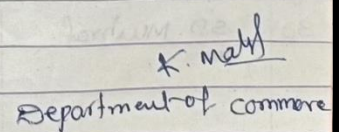 K. Malsf
Department of commore